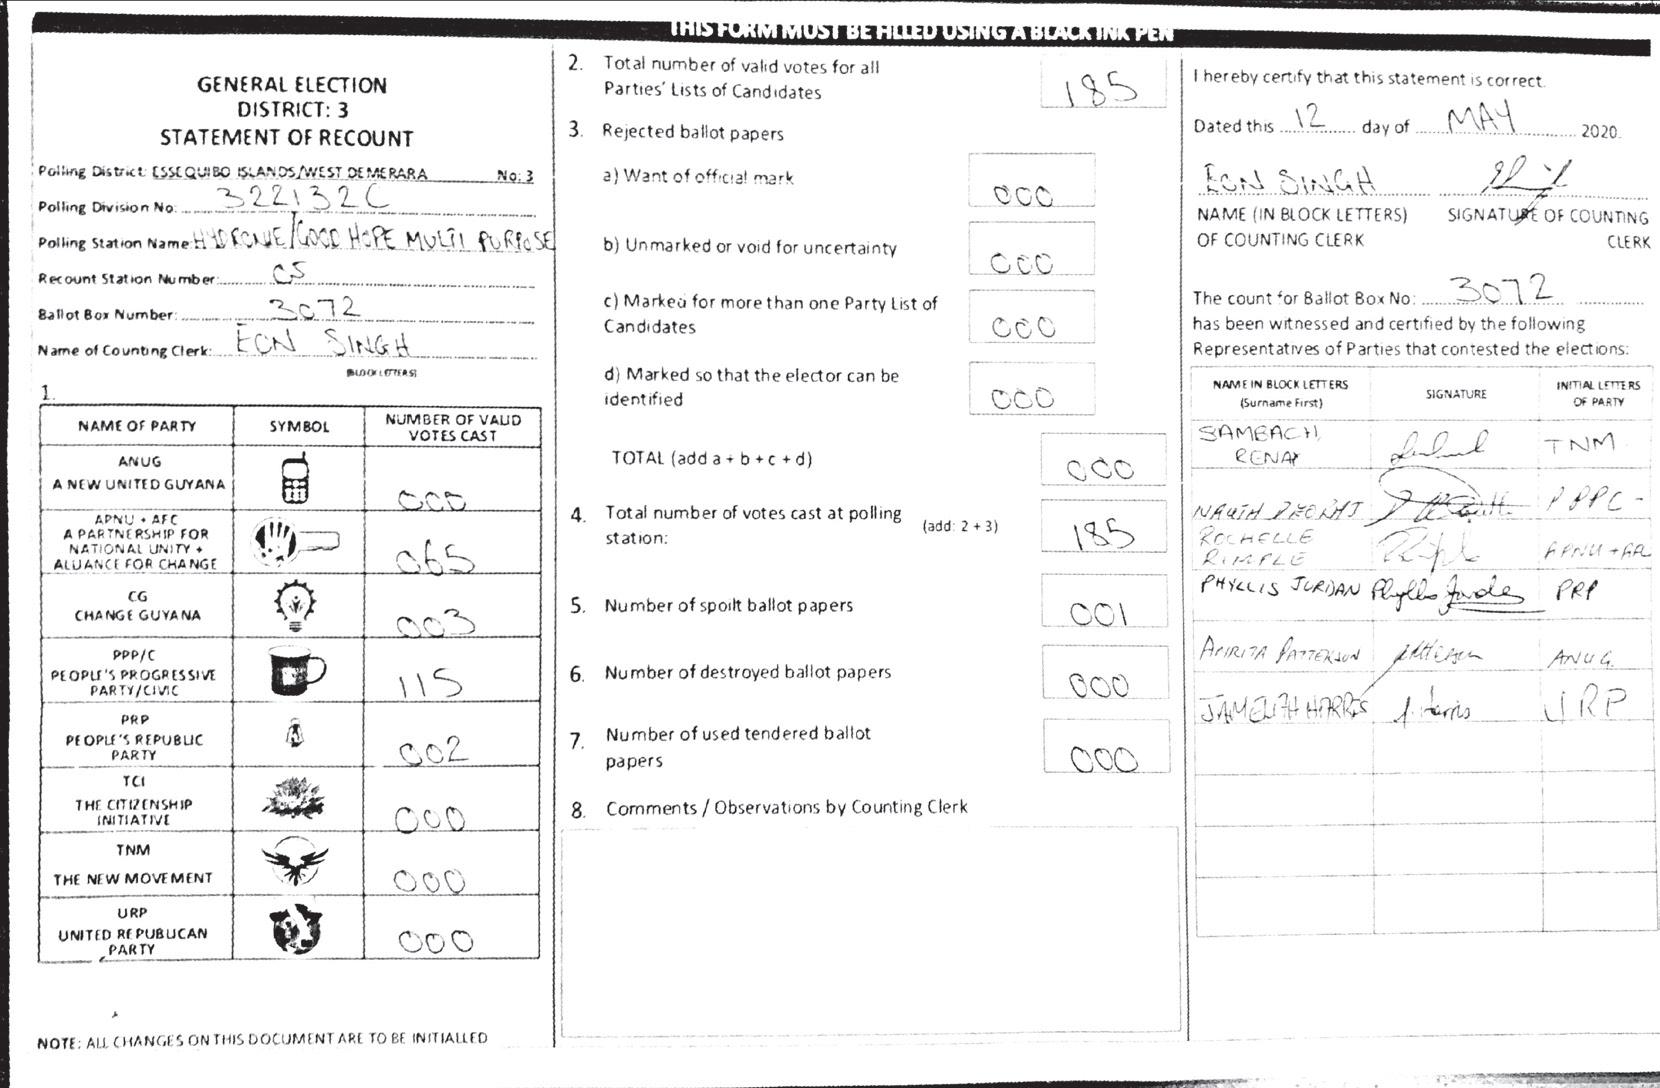 THIS FORM MUST BE FILLED USING A BLACK INK PEN
GENERAL ELECTION
DISTRICT: 3
STATEMENT OF RECOUNT
Polling District: ESSEQUIBO ISLANDS/WEST DEMERARA No: 3
Polling Division No: 322132C
Polling Station Name: HYDRONIE/GOOD HOPE MULTI PURPOSE
Recount Station Number: C5
Ballot Box Number: 3072
Name of Counting Clerk: EON SINGH
(BLOCK LETTERS)
1.
NAME OF PARTY SYMBOL NUMBER OF VALID VOTES CAST
ANUG
A NEW UNITED GUYANA 000
APNU + AFC
A PARTNERSHIP FOR
NATIONAL UNITY +
ALLIANCE FOR CHANGE 065
CG
CHANGE GUYANA 003
PPP/C
PEOPLE'S PROGRESSIVE
PARTY/CIVIC 115
PRP
PEOPLE'S REPUBLIC
PARTY 002
TCI
THE CITIZENSHIP
INITIATIVE 000
TNM
THE NEW MOVEMENT 000
URP
UNITED REPUBLICAN
PARTY 000
NOTE: ALL CHANGES ON THIS DOCUMENT ARE TO BE INITIALLED
2. Total number of valid votes for all
Parties' Lists of Candidates 185
3. Rejected ballot papers
a) Want of official mark 000
b) Unmarked or void for uncertainty 000
c) Marked for more than one Party List of
Candidates 000
d) Marked so that the elector can be
identified 000
TOTAL (add a + b + c + d) 000
4. Total number of votes cast at polling
station: (add: 2 + 3) 185
5. Number of spoilt ballot papers 001
6. Number of destroyed ballot papers 000
7. Number of used tendered ballot
papers 000
8. Comments / Observations by Counting Clerk
I hereby certify that this statement is correct.
Dated this 12 day of MAY 2020.
EON SINGH
NAME (IN BLOCK LETTERS) SIGNATURE OF COUNTING
OF COUNTING CLERK CLERK
The count for Ballot Box No: 3072
has been witnessed and certified by the following
Representatives of Parties that contested the elections:
NAME IN BLOCK LETTERS (Surname First) SIGNATURE INITIAL LETTERS OF PARTY
RENAY TNM
PPPC
ROCHELLE
APNU + AFC
PHYLLIS JORDAN Phyllis Jordan PRP
AMRITA PATTERSON ANUG
HARRIS J. Harris URP